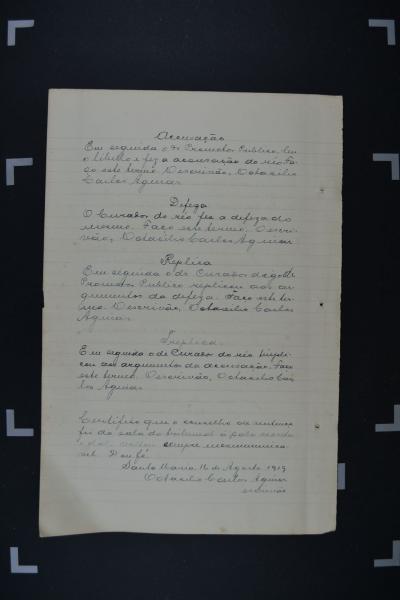 Accusação
Em seguida o dr Promotor Publico leu
o libello e fez a accusação do réo. Fa-
ço este termo. O escrivão, Octacilio
Carlos Aguiar
Defeza
O Curador do réo fez a defeza do
mesmo. Faço este termo. O escri-
vão, Octacilio Carlos Aguiar
Replica
Em seguida o dr.
Promotor Publico replicou aos ar-
gumentos da defeza. Faço este ter-
mo. O escrivão, Octacilio Carlos
Aguiar
Treplica
Em seguida o dr Curador do réo trepli-
cou aos argumentos da accusação. Faço
este termo. O escrivão, Octacilio Car-
los Aguiar
Certifico que o conselho de sentença
foi da sala do tribunal á sala secreta
sempre incommunica-
vel. Dou fé
Santa Maria, de Agosto 1919
Octacilio Carlos Aguiar
escrivão